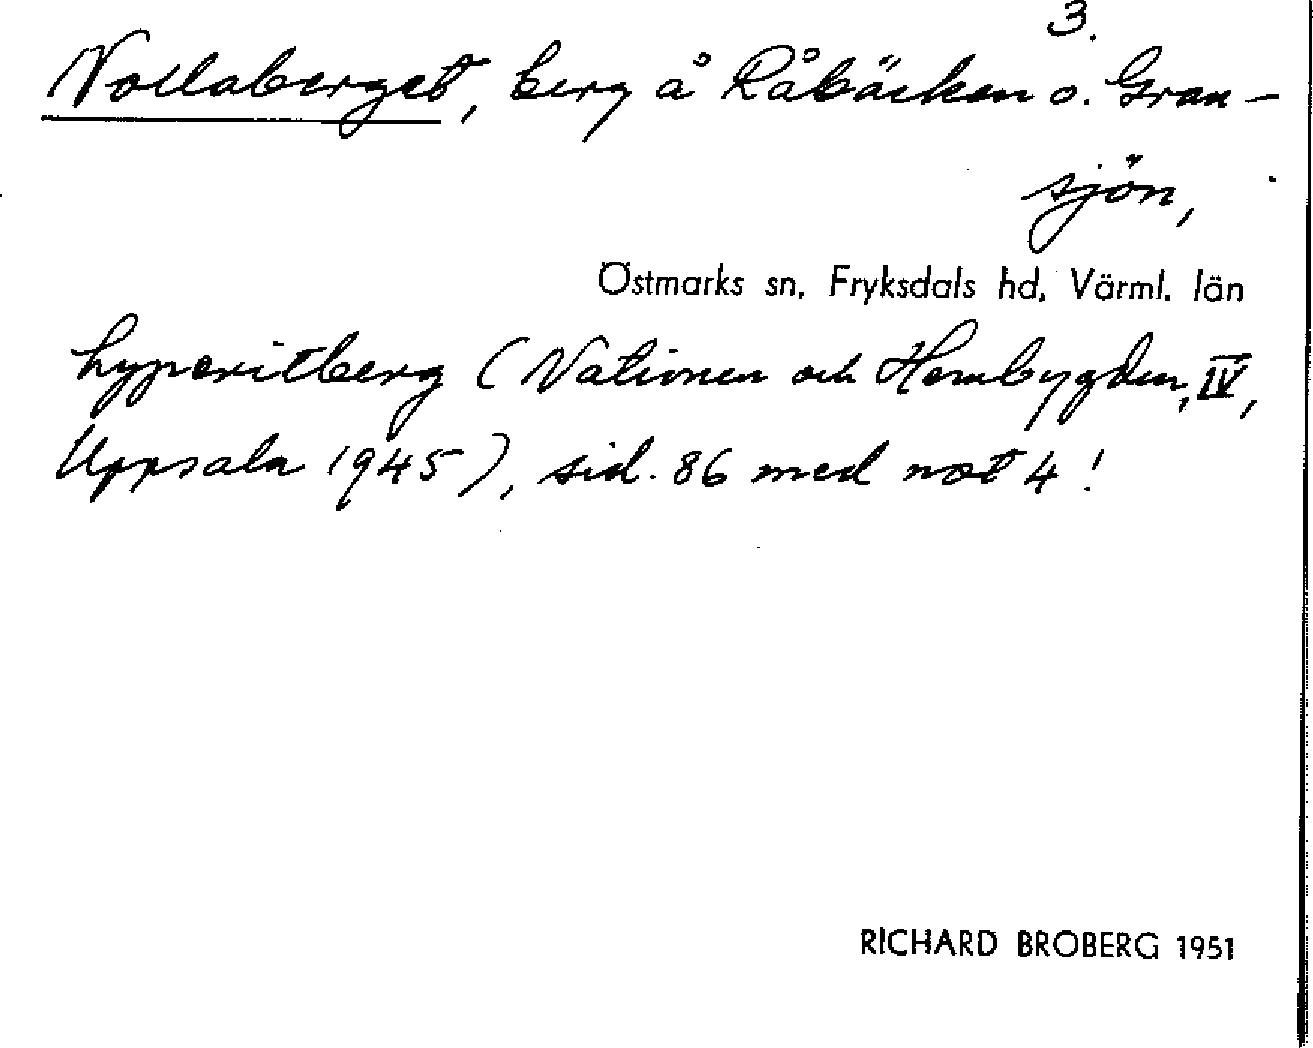 3.
Nollaberget, berg å Råbäcken o. Gran-
sjön,
Östmarks sn, Fryksdals hd, Värml. län
hyperitberg (Nationen och Hembygden, IV,
Uppsala 1945), sid. 86 med not 4!
RICHARD BROBERG 1951